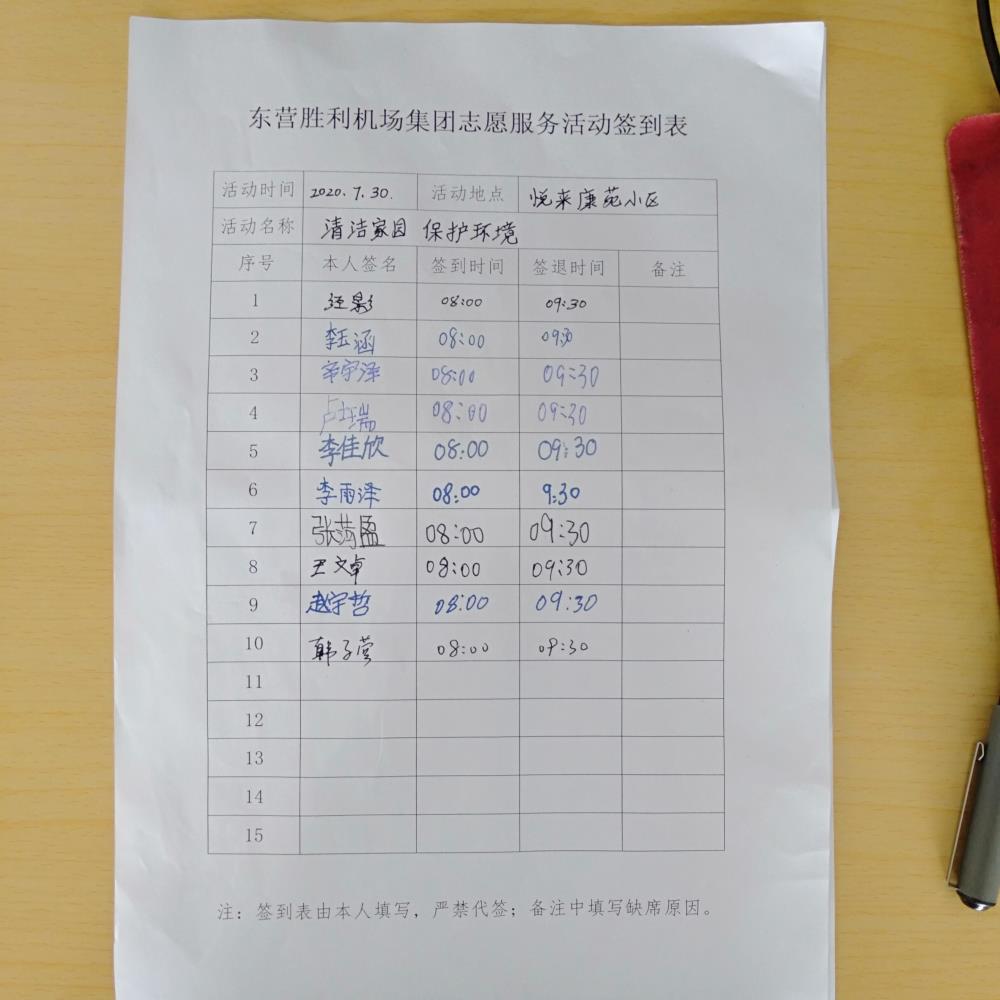 东营胜利机场集团志愿服务活动签到表
活动时间 2020.7.30. 活动地点 悦来康苑小区
活动名称 清洁家园 保护环境
序号 本人签名 签到时间 签退时间 备注
1 汪影 08:00 09:30
2 李玉涵 08:00 09:30
3 08:00 09:30
4 08:00 09:30
5 李佳欣 08:00 09:30
6 李雨泽 08:00 9:30
7 08:00 09:30
8 王文卓 08:00 09:30
9 赵宇哲 08:00 09:30
10 韩子萱 08:00 09:30
11
12
13
14
15
注：签到表由本人填写，严禁代签；备注中填写缺席原因。